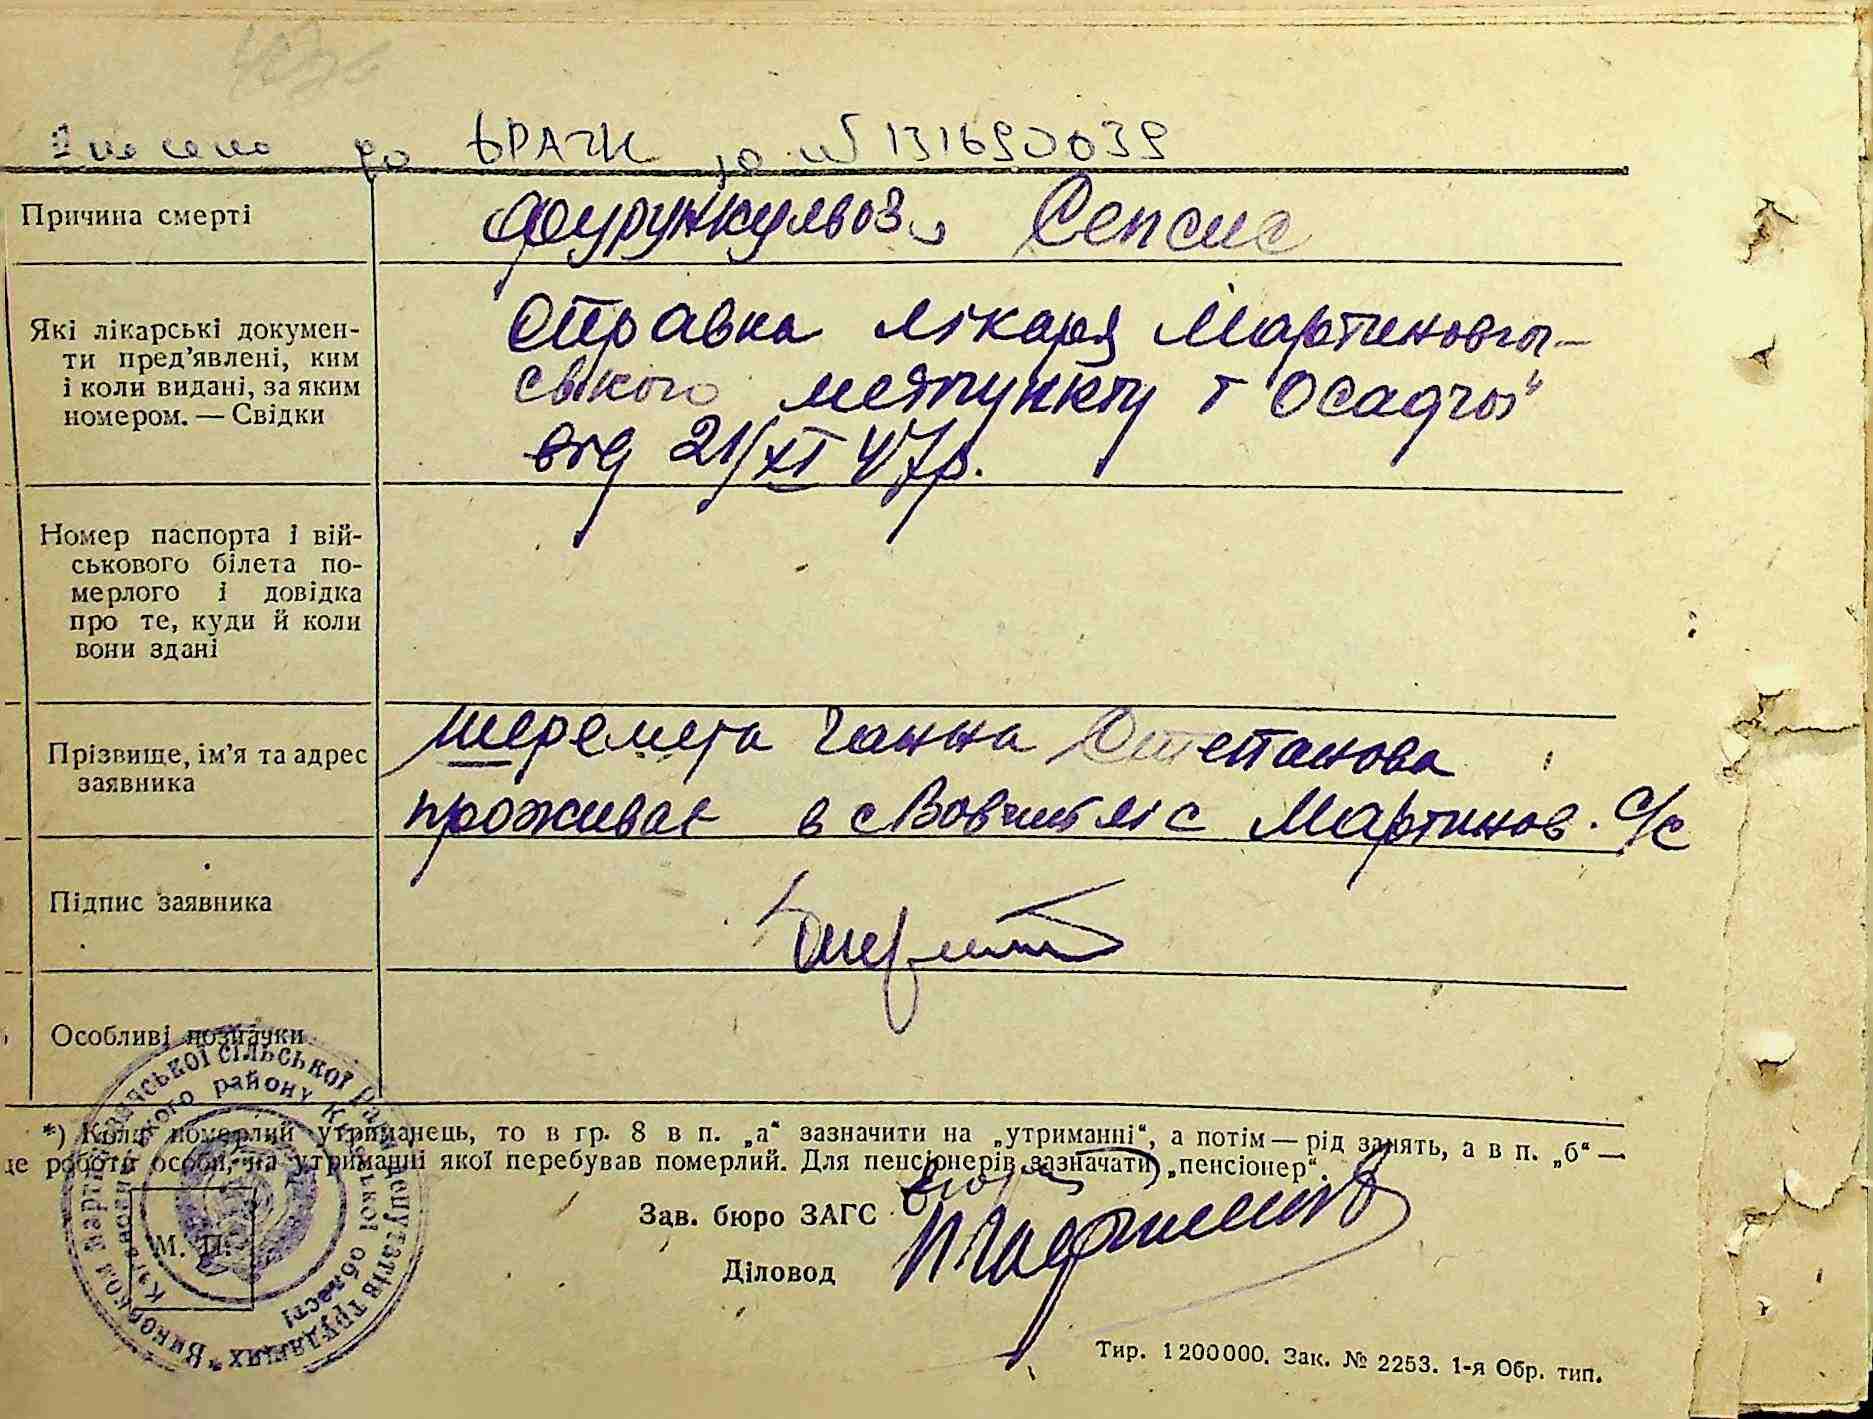 Внесено до ДРАЦС за № 131690039
Причина смерті
Фурункульоз, Сепсис
Які лікарські докумен-
ти пред'явлені, ким
і коли видані, за яким
номером. — Свідки
Справка лікаря Мартинов
ського медпункту т Осадчої
від 21/XI 47р.
Номер паспорта і вій-
ськового білета по-
мерлого і довідка
про те, куди й коли
вони здані
Прізвище, ім'я та адрес
заявника
Шеремета Ганна Степанова
проживає в с Мартинов. с/с
Підпис заявника
Особливі позначки
*) Коли померлий утриманець, то в гр. 8 в п. „а" зазначити на „утриманні", а потім — рід занять, а в п. „б" —
це робота особи, на утриманні якої перебував померлий. Для пенсіонерів зазначати „пенсіонер".
Зав. бюро ЗАГС
Діловод
М. П.
сільської ради депутатів трудящих * Виконком
району області
Тир. 1200000. Зак. № 2253. 1-я Обр. тип.